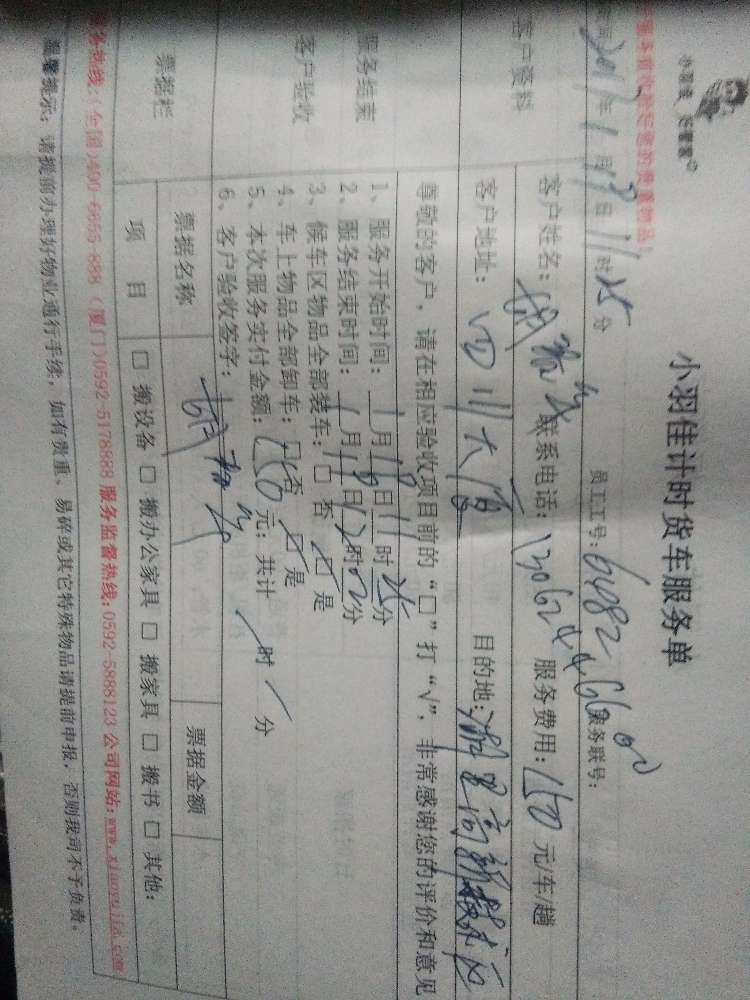 小羽佳 好管家
小羽佳计时货车服务单
的贵重物品!
2017年1月19日11时25分 员工工号: 服务联号:
客户资料
客户姓名: 联系电话: 服务费用:150元/车/趟
客户地址:四川大厦 目的地:高新技术区
尊敬的客户,请在相应验收项目前的“□”打“√”,非常感谢您的评价和意见
服务结束
客户验收
1、服务开始时间:1月19日11时25分
2、服务结束时间:1月19日12时02分
3、候车区物品全部装车:□ 否 ☑ 是
4、车上物品全部卸车:□ 否 ☑ 是
5、本次服务实付金额:150元;共计 / 时 / 分
6、客户验收签字:
票据栏 票据名称 票据金额
项 目 □ 搬设备 □ 搬办公家具 □ 搬家具 □ 搬书 □ 其他:
服务热线:(全国)400-6655-888 (厦门)0592-5178888 服务监督热线:0592-5888123 公司网站:www.xiaoyujia.com
温馨提示:请提前办理好物业通行手续,如有贵重、易碎或其它特殊物品请提前申报,否则我司不予负责。